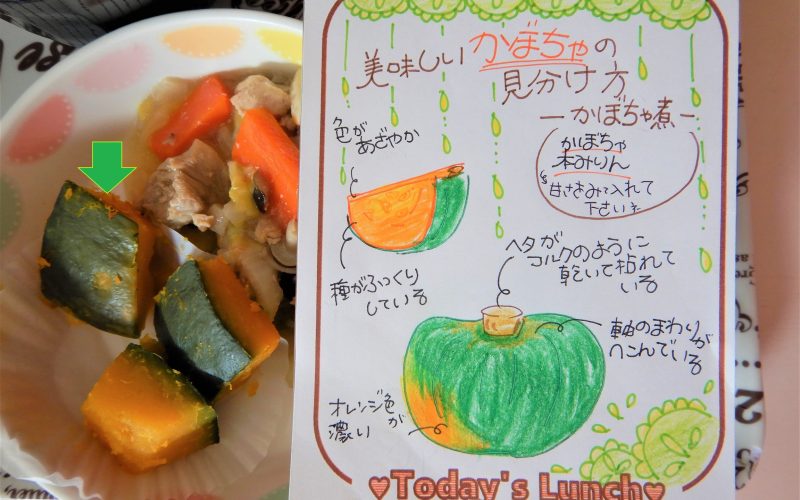 美味しいかぼちゃの
見分け方
色が
あざやか
種がふっくり
している
オレンジ色が
濃い
ーかぼちゃ煮ー
かぼちゃ
本みりん
甘さをみて入れて
下さい
ヘタが
コルクのように
乾いて枯れて
いる
軸のまわりが
へこんでいる
♥Today's Lunch♥